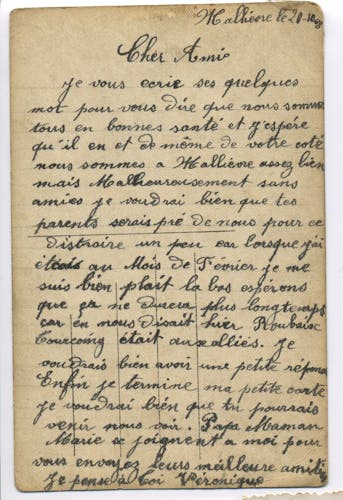 Mallièvre le 20-10-
Cher Ami
Je vous ecrie ses quelques
mot pour vous dire que nous sommes
tous en bonnes santé et j'espère
qu'il en et de même de votre coté
nous sommes a Mallièvre assez bien
mais Malheureusement sans
amies je voudrai bien que tes
parents serais pré de nous pour ce
distraire un peu car lorsque j'ai
étais au Mois de Février je me
suis bien plait la bas espérons
que ça ne durera plus longtemps
car en nous disait hier Roubaix
Tourcoing était aux alliés. Je
voudrais bien avoir une petite réponse
Enfin je termine ma petite carte
je voudrai bien que tu pourrais
venir nous voir. Papa Maman
Marie se joignent a moi pour
vous envoyez leurs meilleure amitiés
Je pense à toi Véronique